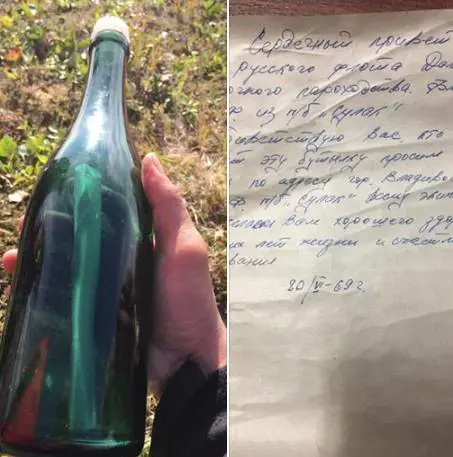 Сердечный привет
русского флота Дал
очного пароходства. Вл
из т/б "Сулак"
иветствую Вас, кто
т эту бутылку просим
по адресу гор. Владивос
т/б "Сулак" всему экип
Вам хорошего здо
их лет жизни и счастли
вания
20/VI-69 г.